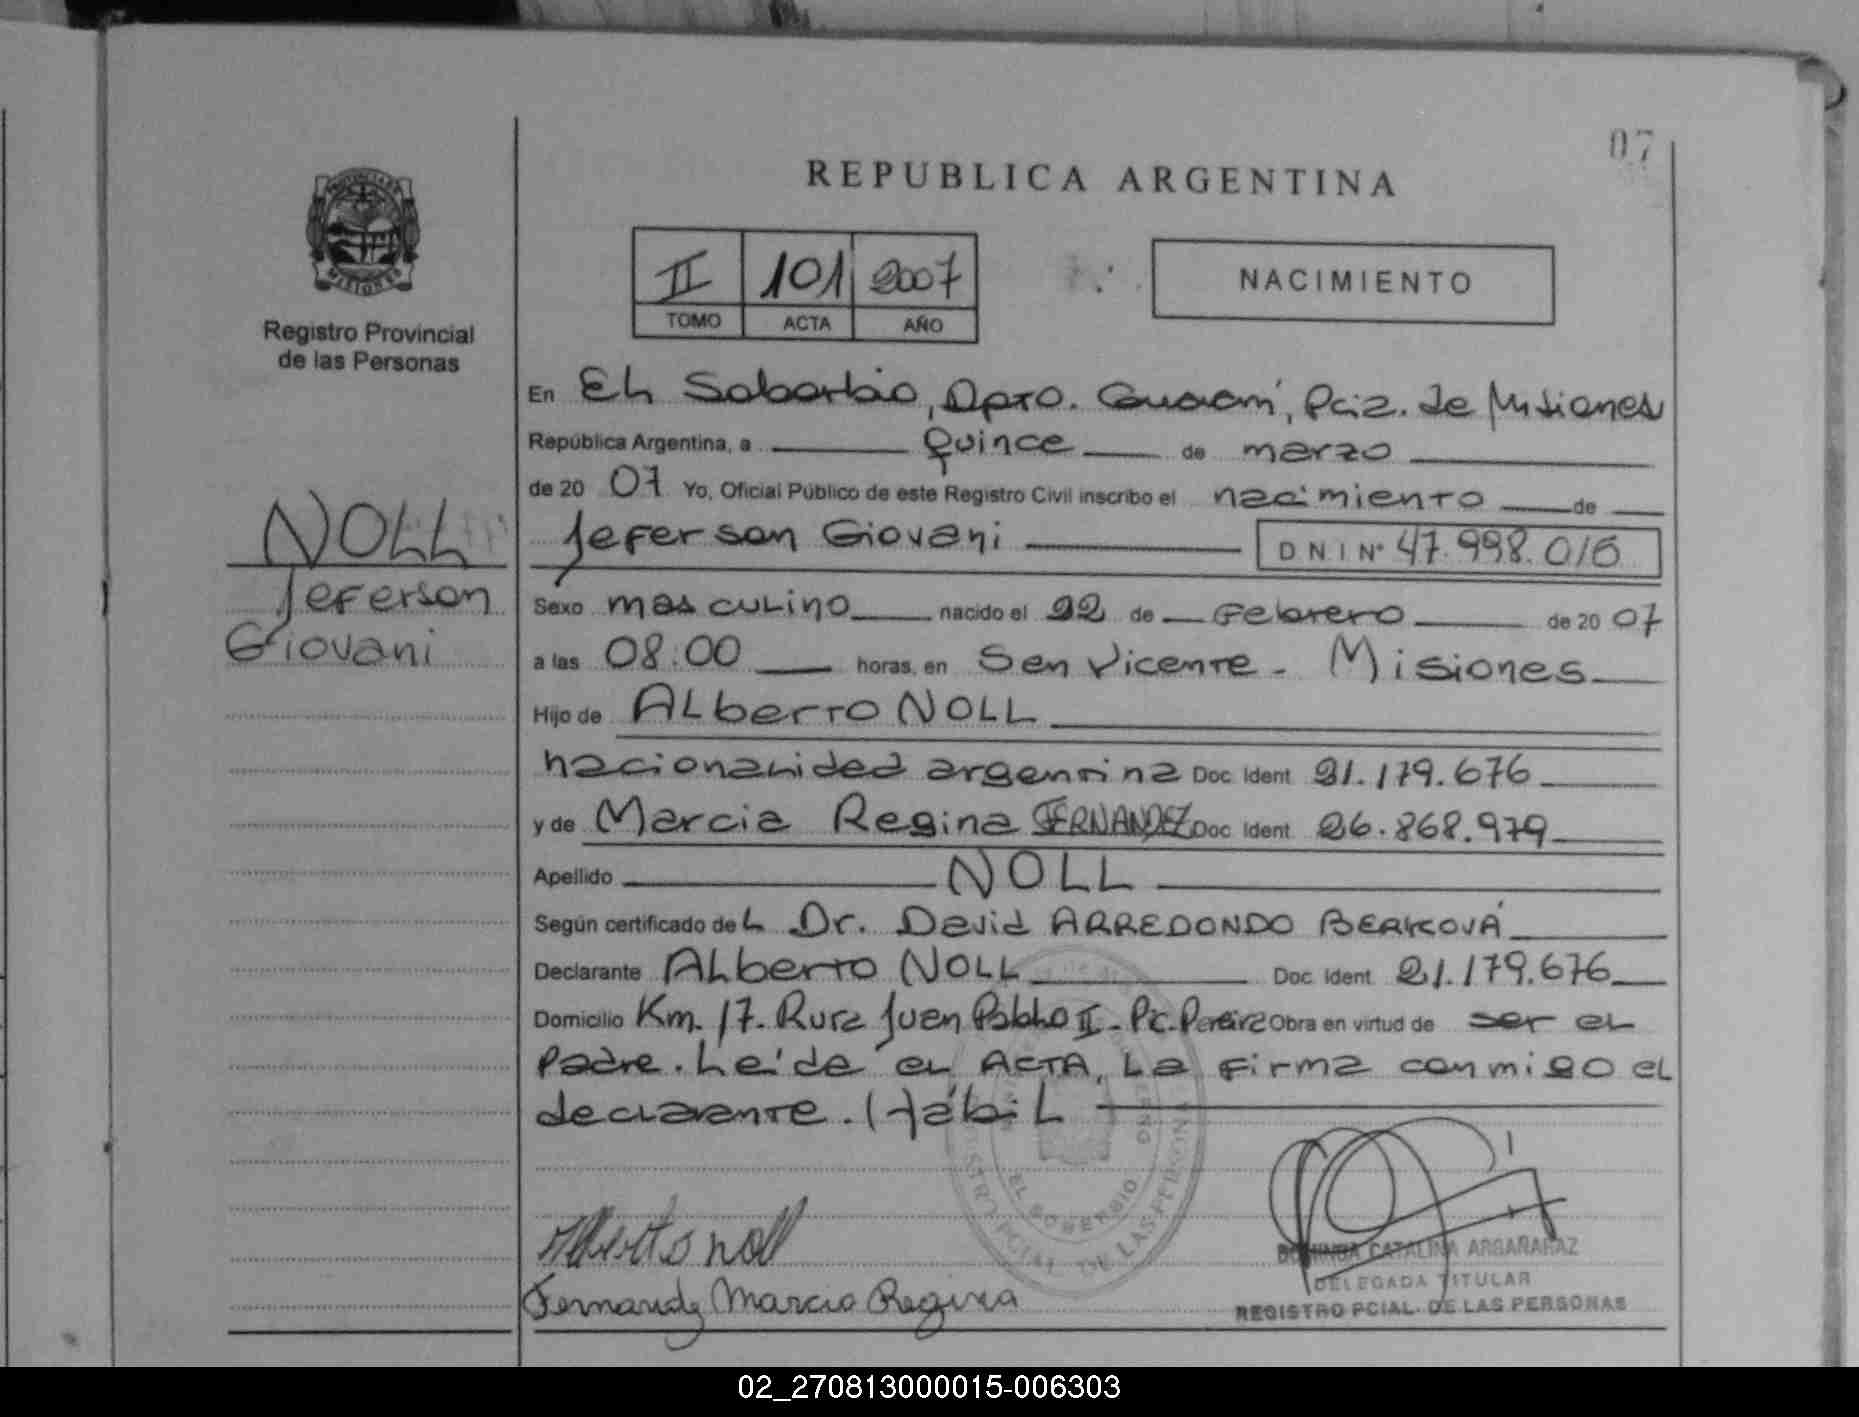 07
REPUBLICA ARGENTINA
II 101 2007
TOMO ACTA AÑO
NACIMIENTO
Registro Provincial
de las Personas
NOLL
Jeferson
Giovani
En EL Soberbio, Dpto. Guaraní, Pcia. de Misiones
República Argentina, a quince de marzo
de 20 07 Yo, Oficial Público de este Registro Civil inscribo el nacimiento de
Jeferson Giovani D N I Nº 47.998.016
Sexo masculino nacido el 22 de Febrero de 20 07
a las 08:00 horas, en San Vicente - Misiones
Hijo de ALberto NOLL
nacionalidad argentina Doc. Ident. 21.179.676
y de Marcia Regina FERNANDEZ Doc. Ident. 26.868.979
Apellido NOLL
Según certificado del Dr. David ARREDONDO
Declarante ALberto NOLL Doc. Ident. 21.179.676
Domicilio Km. 17. Ruta Juan Pablo II - Pc. Obra en virtud de ser el
padre. Leída el ACTA, La firma conmigo el
declarante. Hábil
EL SOBERBIO
Alberto noll
Fernandez Marcia Regina
CATALINA ARGAÑARAZ
DELEGADA TITULAR
REGISTRO PCIAL. DE LAS PERSONAS
02_270813000015-006303